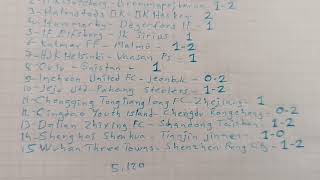 2-IK Göteborg-Brommapojkarna 1-2
3-Halmstads BK-BK Häcken 2
4-Hammarby-Degerfors IF 1
5-IF Elfsborg-IK Sirius 1
6-Kalmar FF-Malmö 1-2
7-HJK Helsinki-Vaasan Ps 1
8-Gnistan 1
9-Incheon United FC-Jeonbuk 0-2
10-Jeju Utd-Pohang Steelers 1-2
11-Chongqing Tonglianglong FC-Zhejiang 1
12-Qingdao Youth Island-Chengdu Rongcheng 0-2
13-Dalian Zhixing FC-Shandong Taishan 1-2
14-Shanghai Shenhua-Tianjin Jinmen 1-0
15-Wuhan Three Towns-Shenzhen Peng City 1-2
5.120